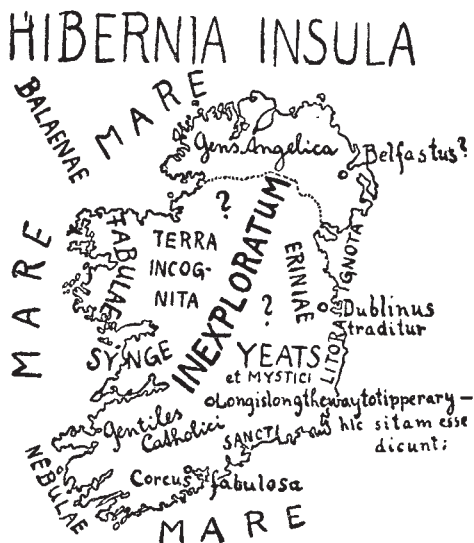 HIBERNIA INSULA
BALAENAE
MARE
Gens Angelica
Belfastus?
?
MARE
FABULAE
TERRA
INCOG-
NITA
INEXPLORATUM
ERINIAE
?
LITORA IGNOTA
Dublinus
traditur
SYNGE
YEATS
et MYSTICI
Longislongthewaytotipperary-
hic sitam esse
dicunt;
Gentiles
Catholici
SANCTI
NEBULAE
Corcus fabulosa
MARE